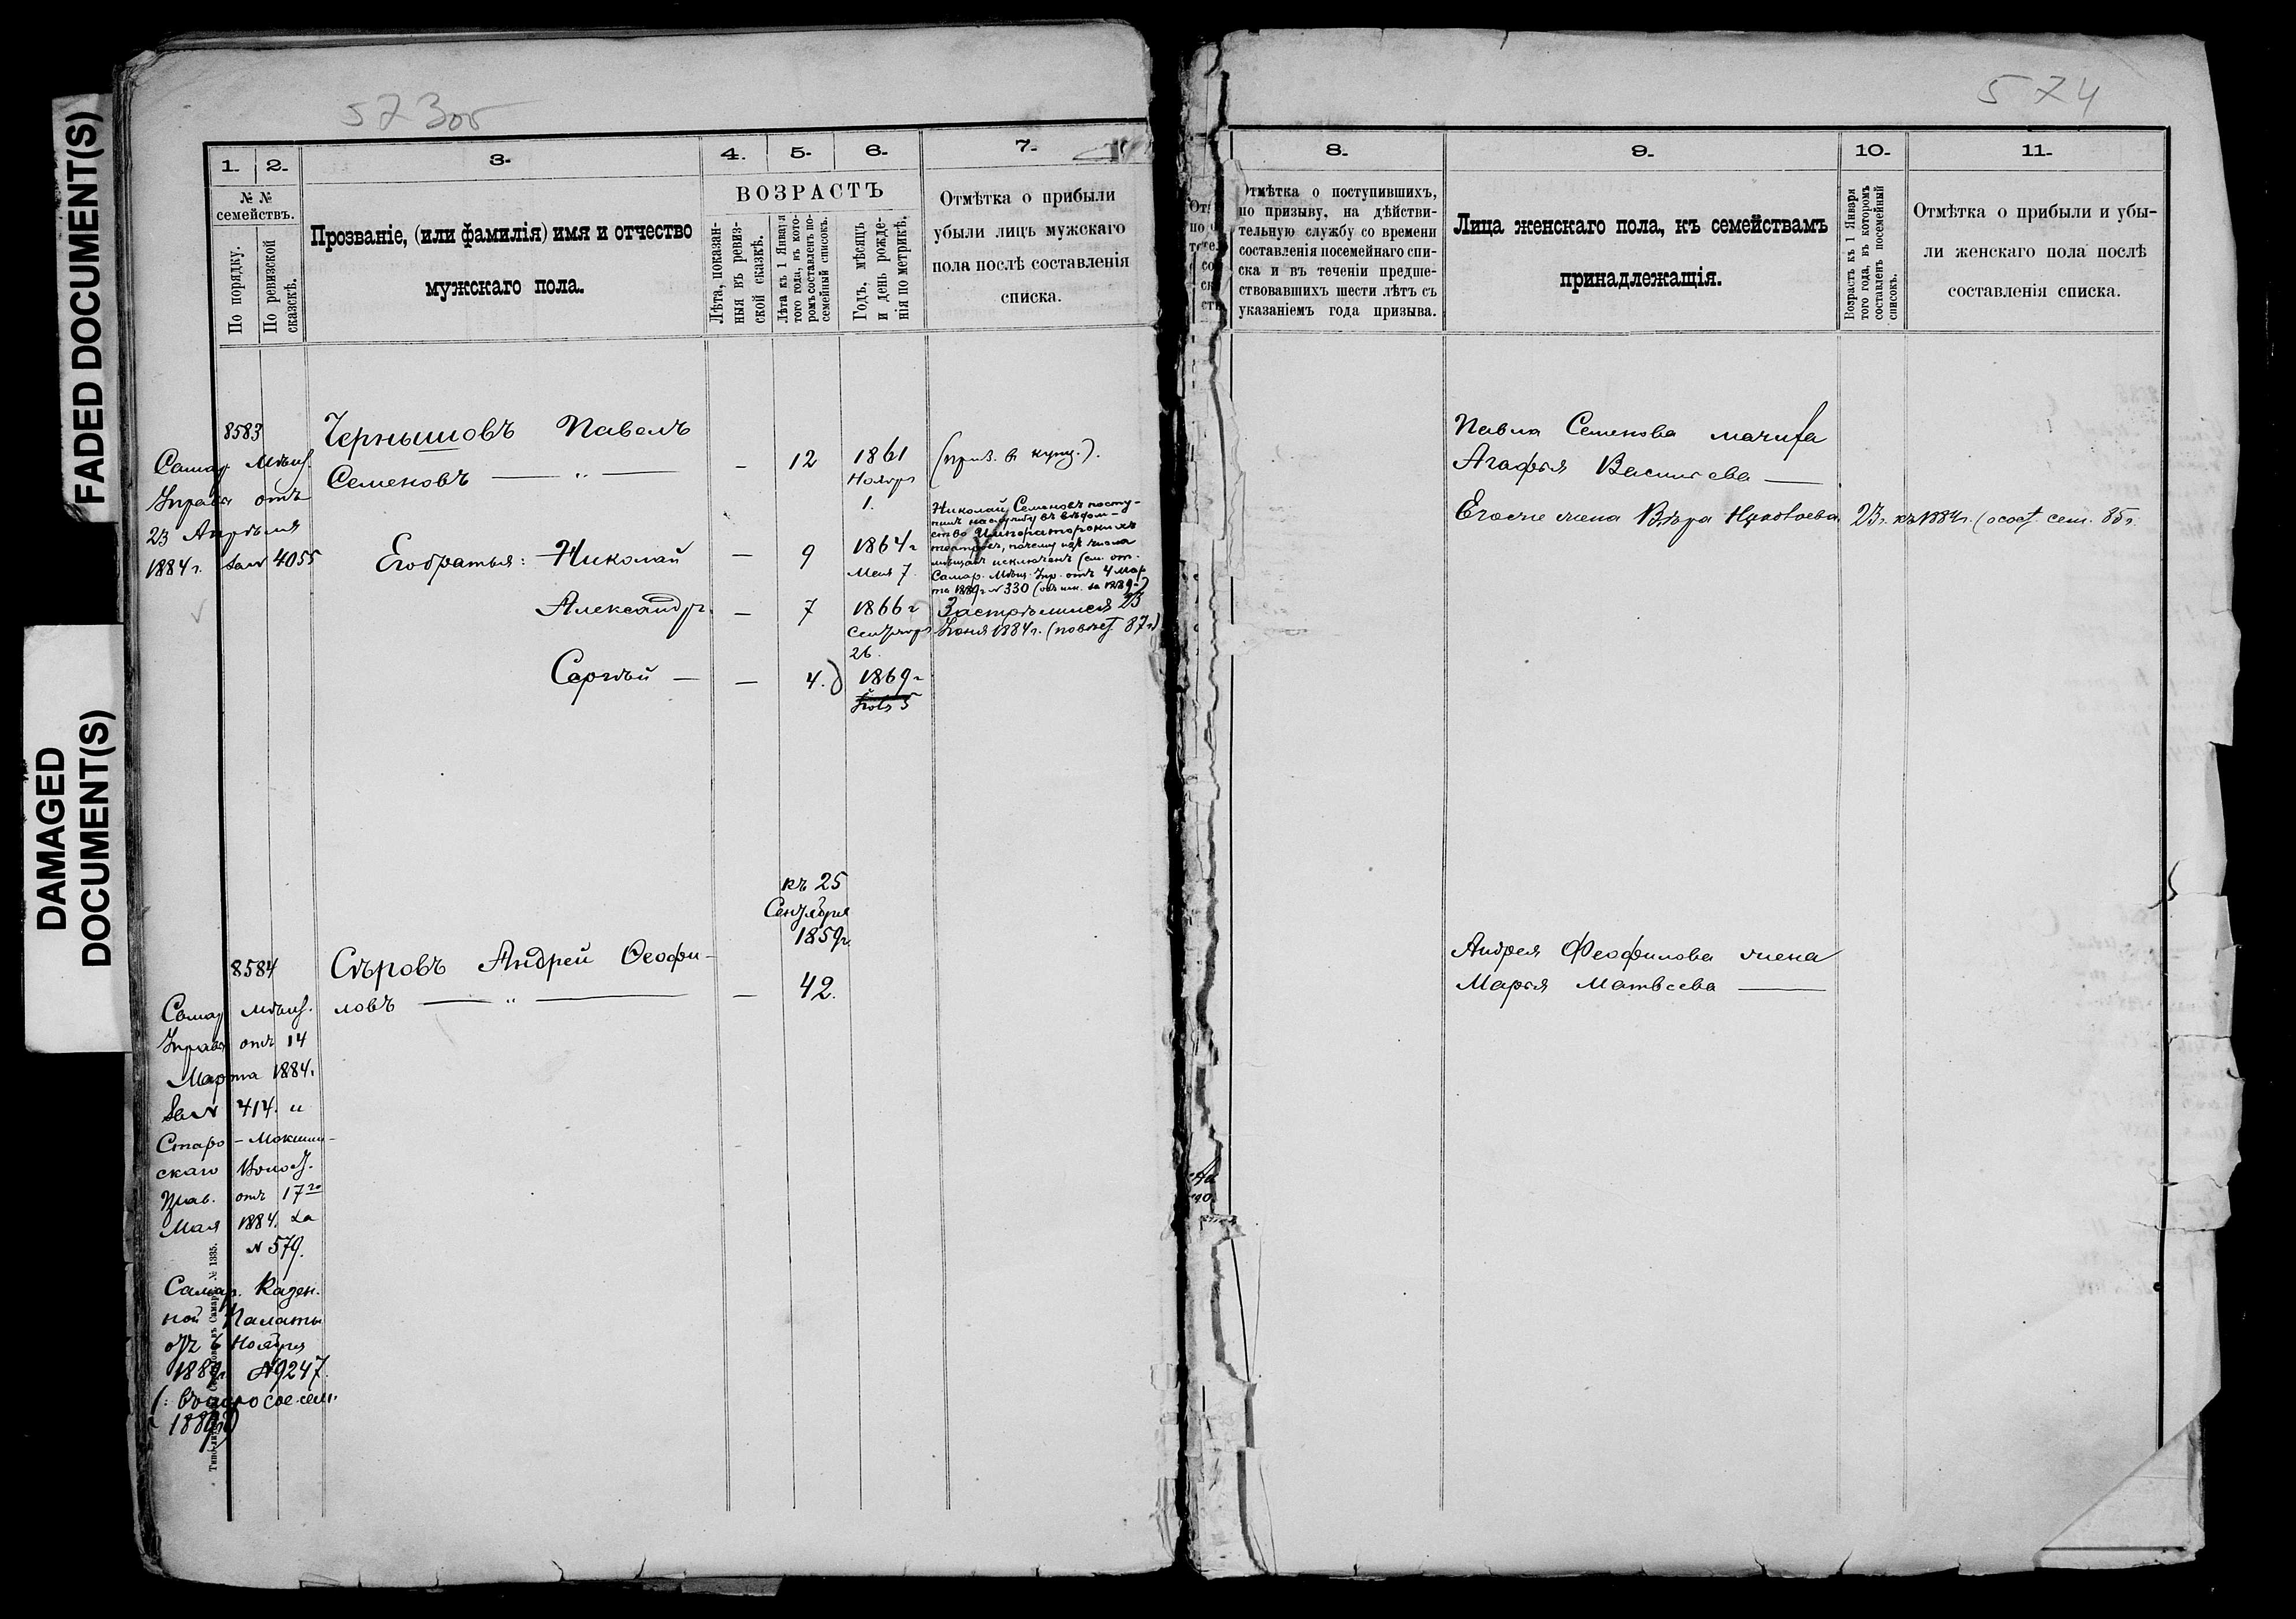 FADED DOCUMENT(S)
DAMAGED
DOCUMENT(S)
573об
1.
2.
3.
4.
5.
6.
7.
№ №
семействъ.
По порядку.
По ревизской
сказкѣ.
Прозваніе, (или фамилія) имя и отчество
мужскаго пола.
ВОЗРАСТЪ
Лѣта, показан-
ныя въ ревиз-
ской сказкѣ.
Лѣта къ 1 Января
того года, въ кото-
ромъ составленъ по-
семейный списокъ.
Годъ, мѣсяцъ
и день рожде-
нія по метрикѣ.
Отмѣтка о прибыли
убыли лицъ мужскаго
пола послѣ составленія
списка.
8583
Самар. Мѣщ.
Управы отъ
23 Апрѣля
1884 г. за № 4055
Чернышовъ Павелъ
Семеновъ — „ —
— 12
1861
Ноября
1.
(приз. въ купц.).
Его братья: Николай
— 9
1864 г
Мая 7.
Николай Семеновъ посту-
пилъ на службу въ вѣдом-
ство Императорскихъ
театровъ, почему изъ числа
мѣщанъ исключенъ (см. от.
Самар. Мѣщ. Упр. отъ 4 Мар
та 1889 г № 330
Александръ.
— 7
1866 г
Сентября
26.
Застрѣлился 23
Іюня 1884 г. 87 г.)
Сергѣй —
— 4.
1869 г
5
къ 25
Сентября
1859 г.
8584
Сѣровъ Андрей Ѳеофи-
ловъ — „ —
— 42.
Самар. Мѣщ.
Управы отъ 14
Марта 1884.
за № 414. и
Старо-Макшин-
скаго Волос.
Прав. отъ 17го
Мая 1884. за
№ 579.
Самар. Казен.
ной Палаты
отъ 6 Ноября
№ 9247.
№ 1335.
574
8.
9.
10.
11.
Отмѣтка о поступившихъ,
по призыву, на дѣйстви-
тельную службу со времени
составленія посемейнаго спи-
ска и въ теченіи предше-
ствовавшихъ шести лѣтъ съ
указаніемъ года призыва.
Лица женскаго пола, къ семействамъ
принадлежащія.
Возрастъ къ 1 Января
того года, въ которомъ
составленъ посемейный
списокъ.
Отмѣтка о прибыли и убы-
ли женскаго пола послѣ
составленія списка.
Павла Семенова мачиха
Агафья Васильева —
Его же жена Вѣра Николаева 23 г. къ 1884 г. 85 г.
Андрея Феофилова жена
Марья Матвеева —